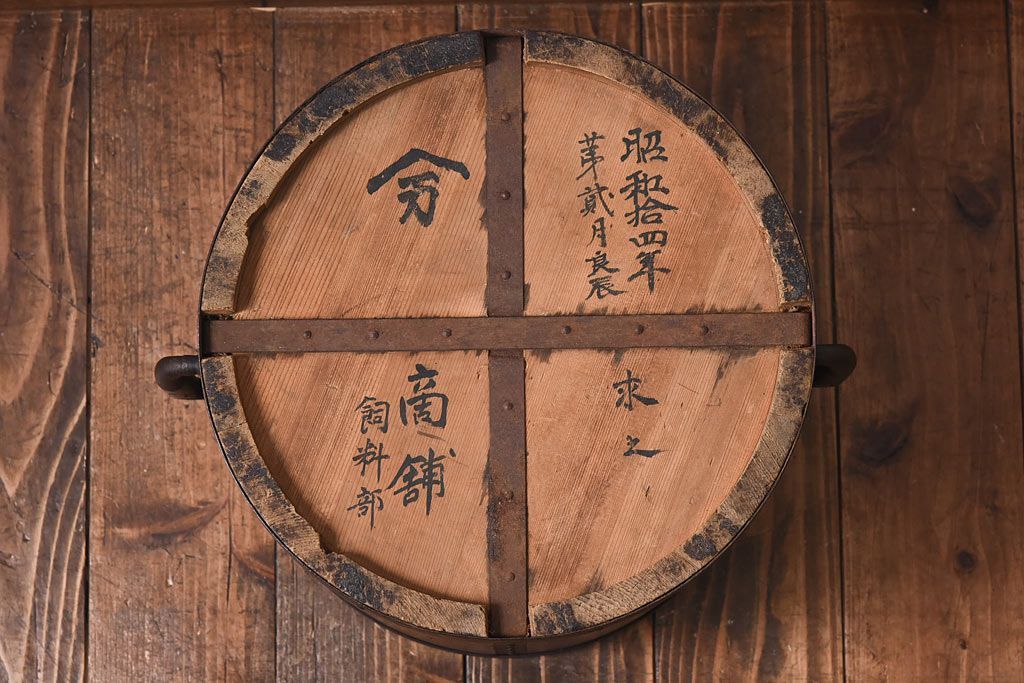 昭和拾四年
苐貳月良辰
求之
商舗
飼料部